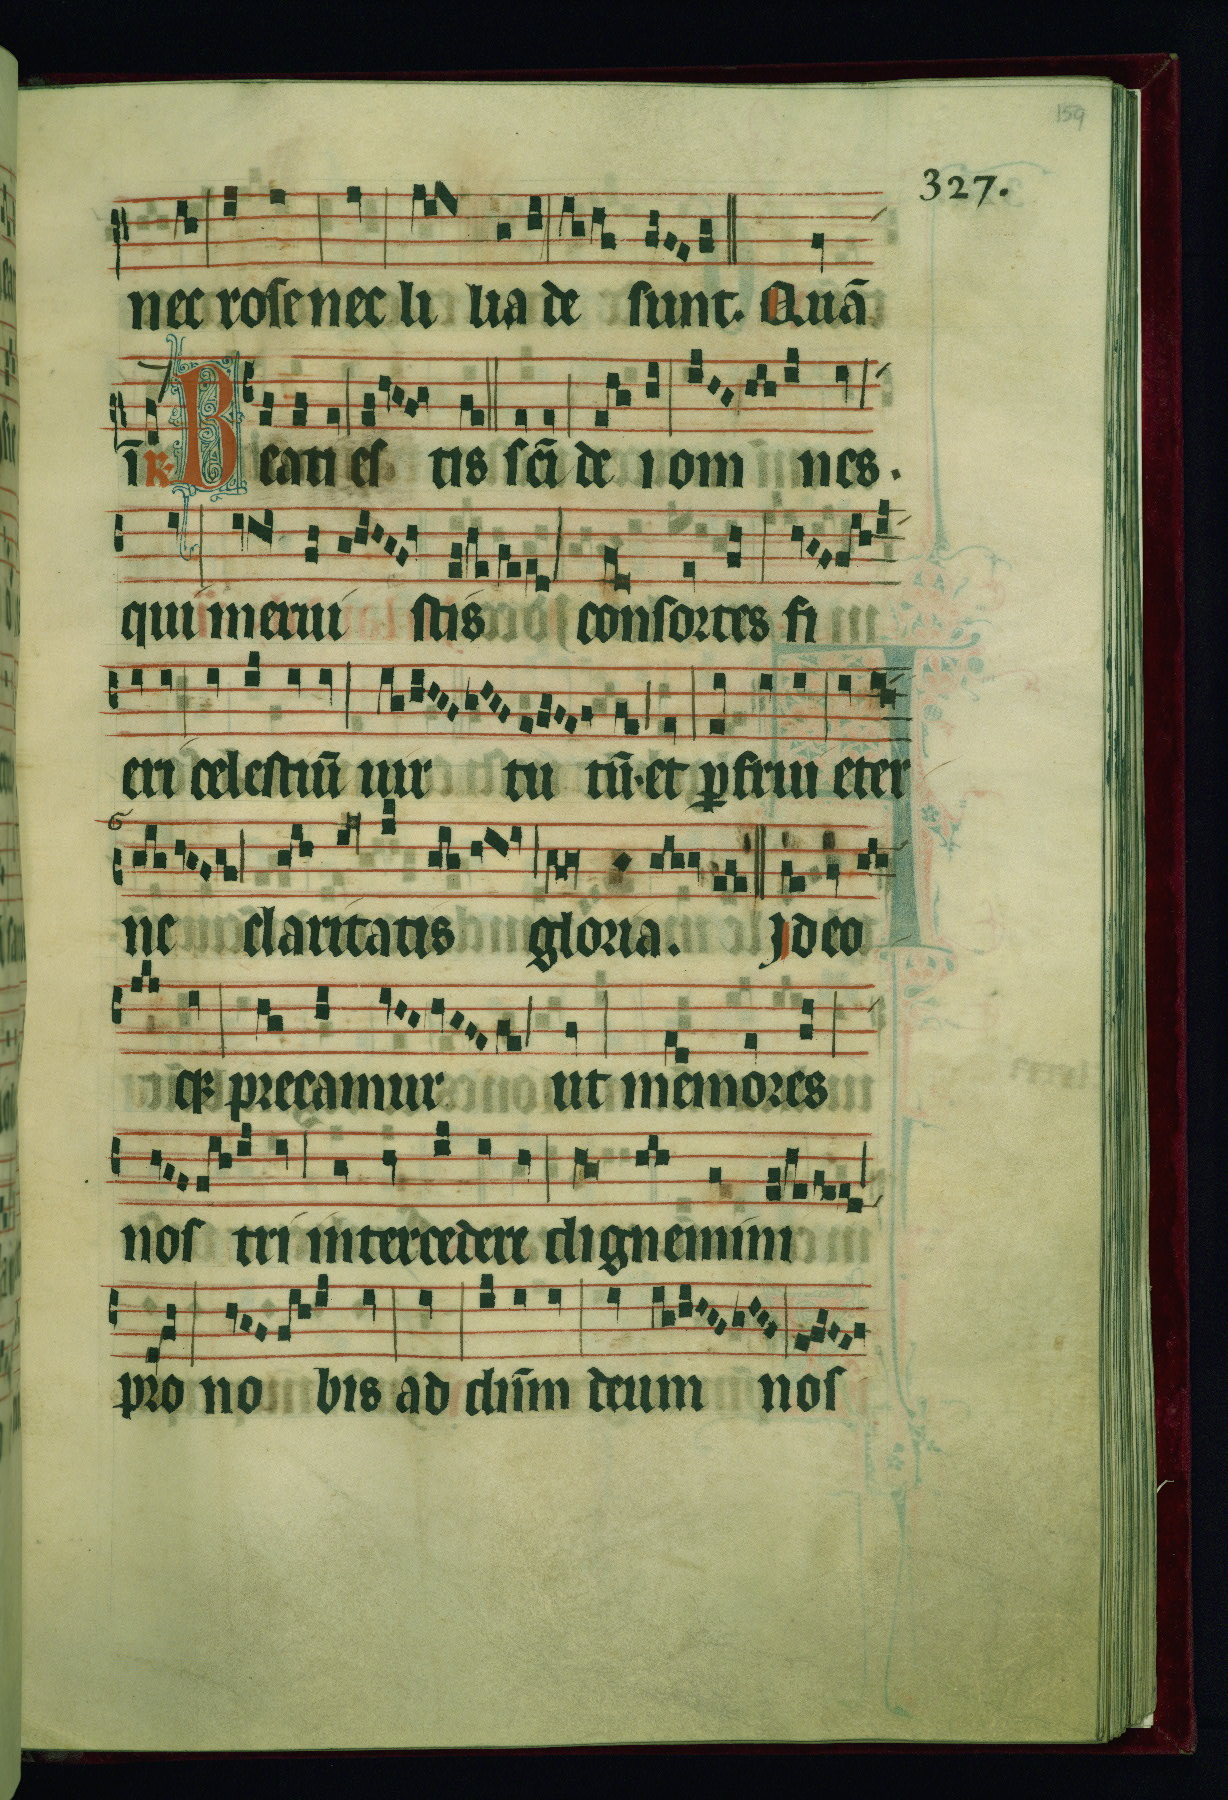 159
327.
nec rose nec li lia de sunt. Quā
ī R. Beati es tis sc̄i de i om nes.
qui merui stis consortes fi
eri celestiū uir tu tū. et ꝑfrui eter
ne claritatis gloria. Ideo
qꝫ precamur ut memores
nos tri intercedere dignemini
pro no bis ad dn̄m deum nos